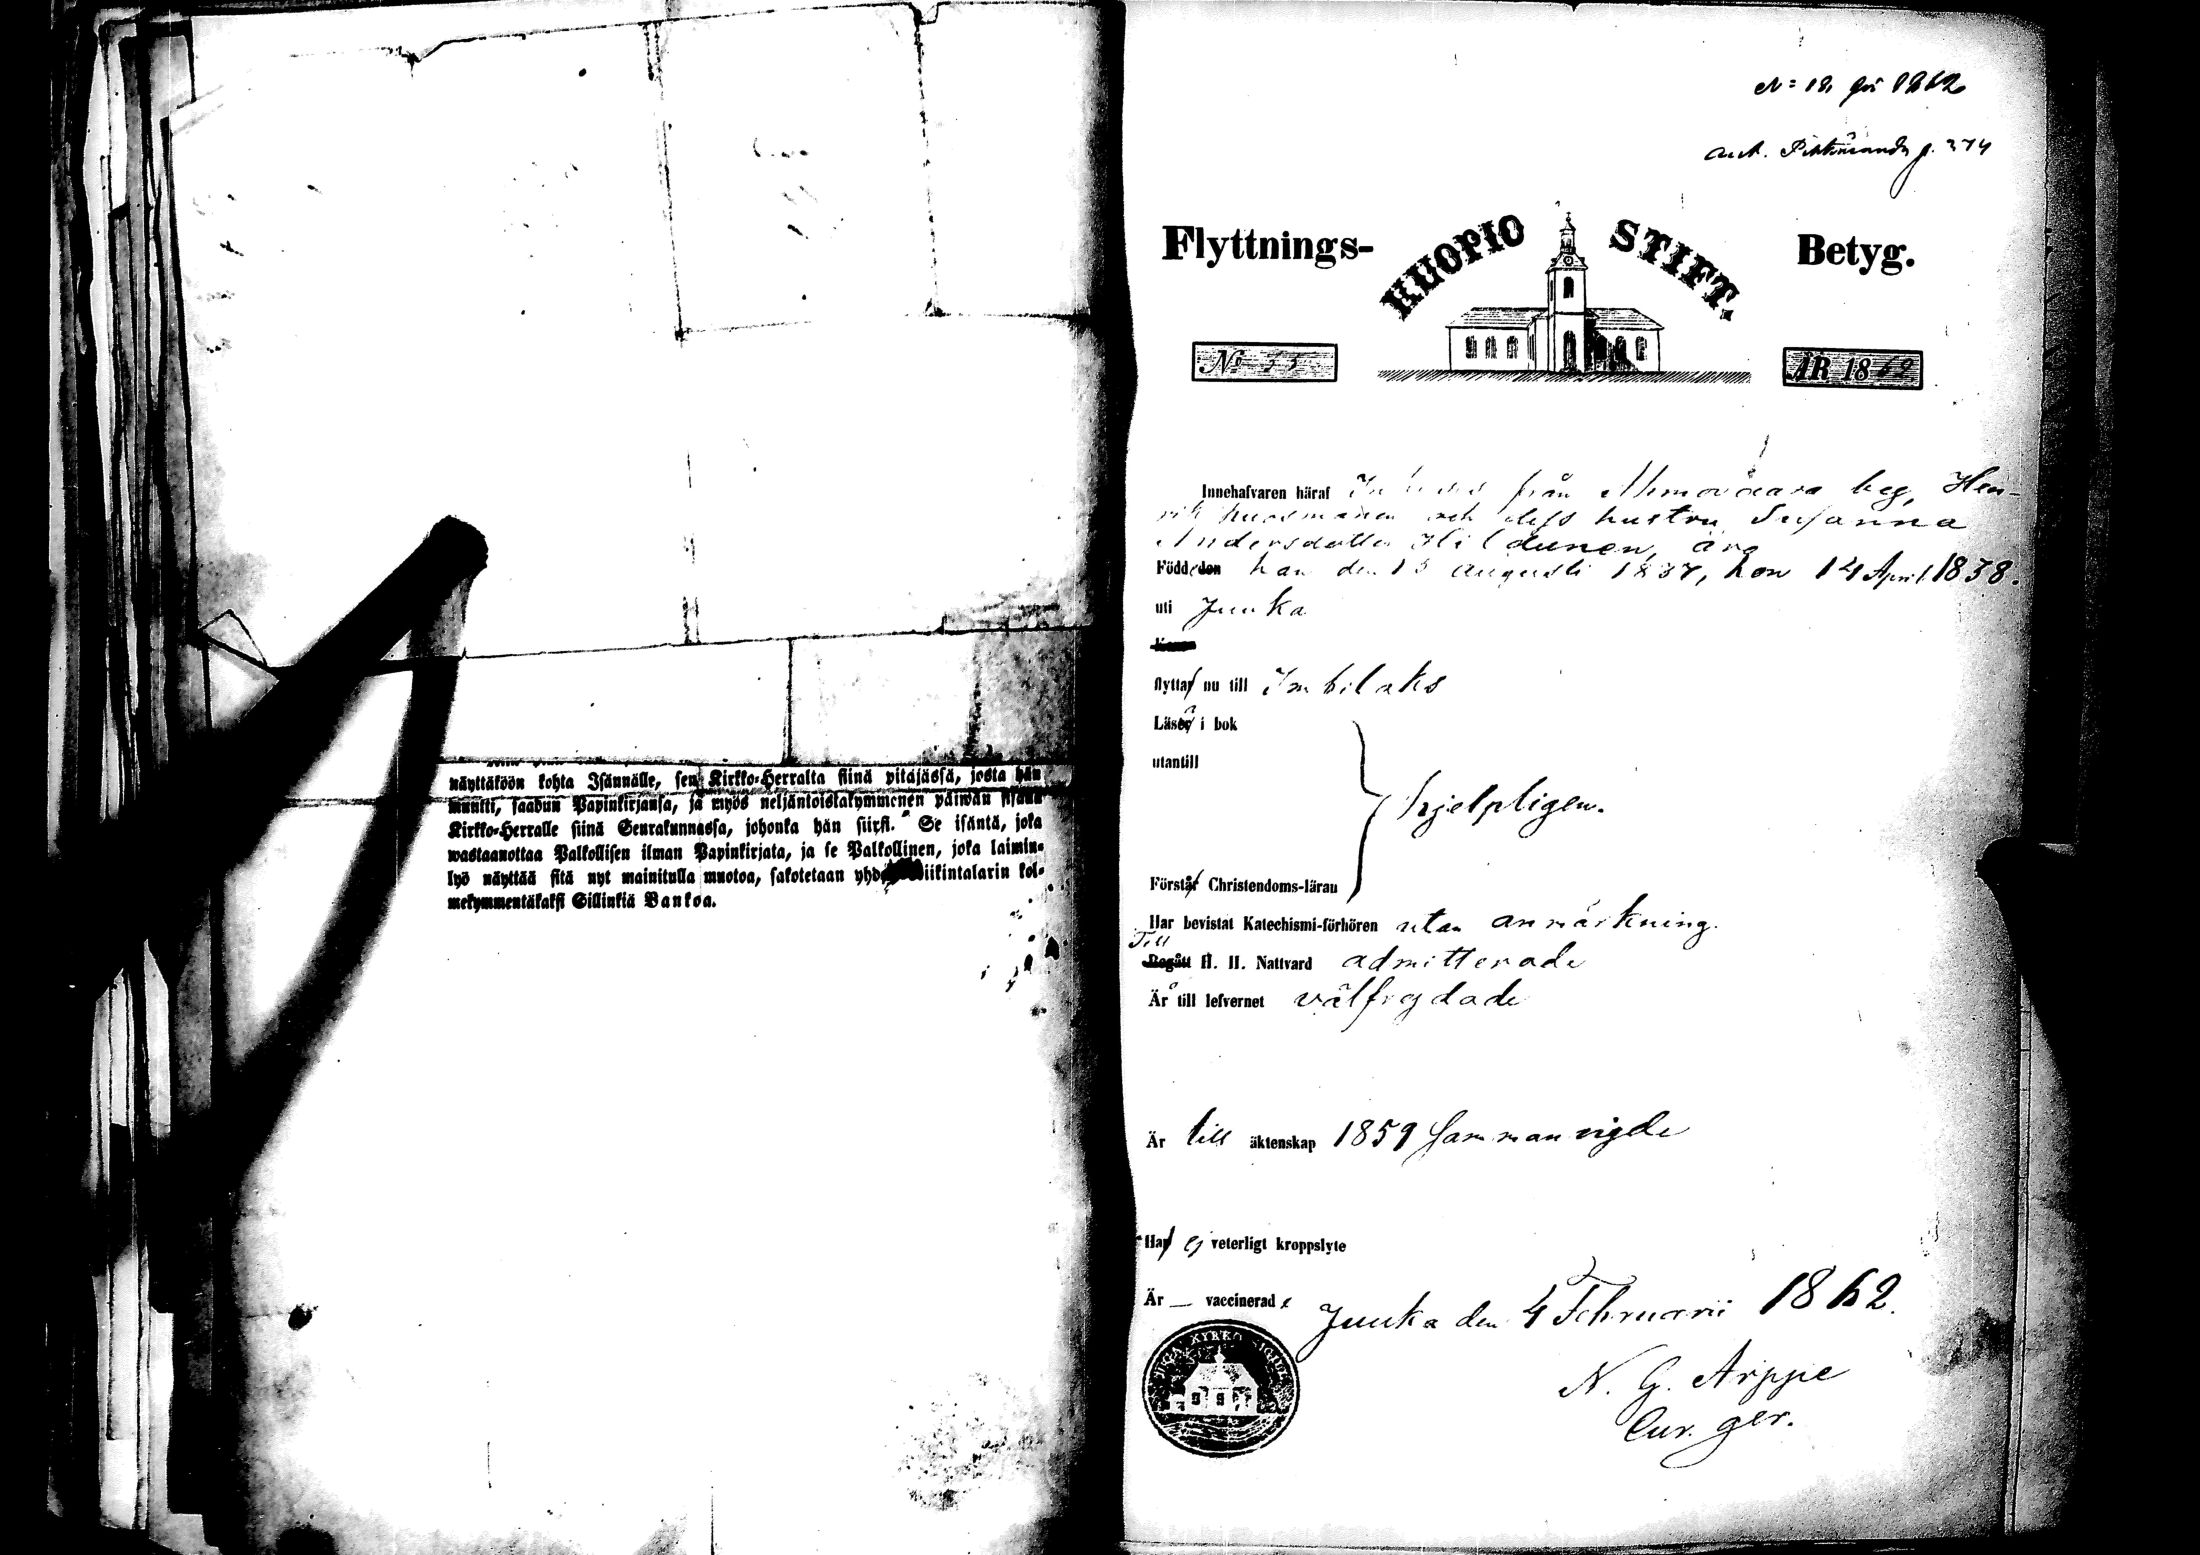 näyttäköön kohta Isännälle, sen Kirkko-Herralta siinä pitäjässä, josta hän
muutti, saadun Papinkirjansa, ja myös neljäntoistakymmenen päiwän sisään
Kirkko-Herralle siinä Seurakunnassa, johonka hän siirsi. Se isäntä, joka
wastaanottaa Palkollisen ilman Papinkirjata, ja se Palkollinen, joka laimin-
lyö näyttää sitä nyt mainitulla muotoa, sakotetaan kol-
mekymmentäkaksi Sillinkiä Bankoa.
N=18 för 1862
p. 374
Flyttnings- KUOPIO STIFT. Betyg.
No 55
ÅR 1862
Innehafvaren häraf från beg, Hen-
rik och dess hustru Susanna
Andersdotter äro
Född den han den 13 Augusti 1837, hon 14 April 1838.
uti Juuka
flyttar nu till Imbilaks
Läser i bok
utantill
hjelpligen.
Förstår Christendoms-läran
Har bevistat Katechismi-förhören utan anmärkning.
Till
Begått H. H. Nattvard admitterade
Är till lefvernet välfrejdade
Är till äktenskap 1859 sammanvigde
Har ej veterligt kroppslyte
Är — vaccinerade
Juuka den 4 Februarii 1862.
N. G. Arppe
Cur. ger.
KYRKO SIGILL